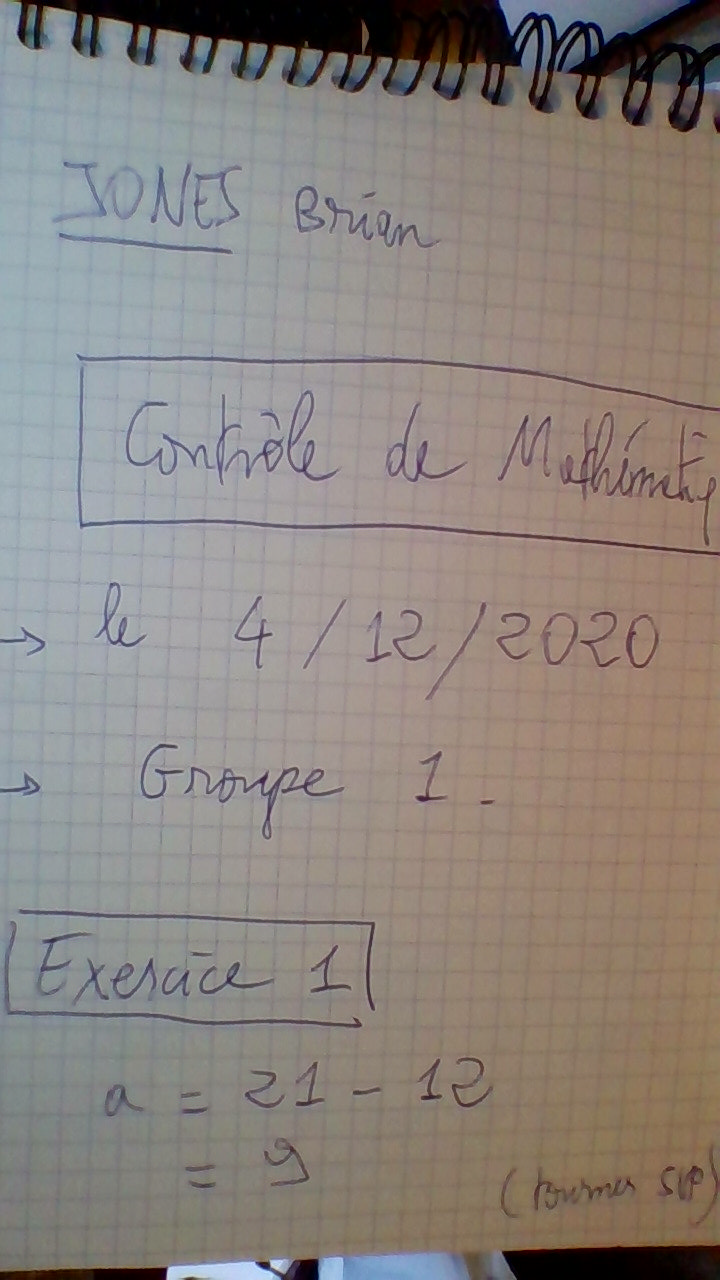 JONES Brian
Contrôle de Mathématiq
→ le 4/12/2020
→ Groupe 1.
Exercice 1
a = 21 - 12
= 9
(tourner SVP)